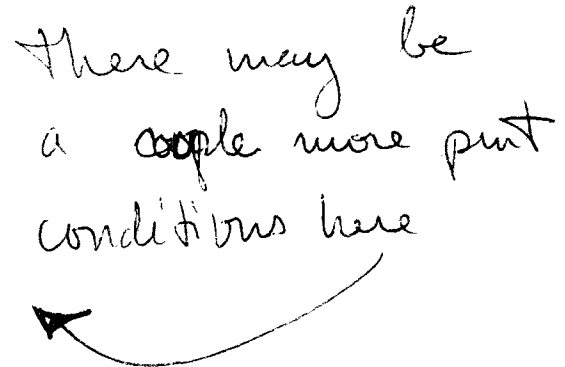 there may be
a couple more print
conditions here